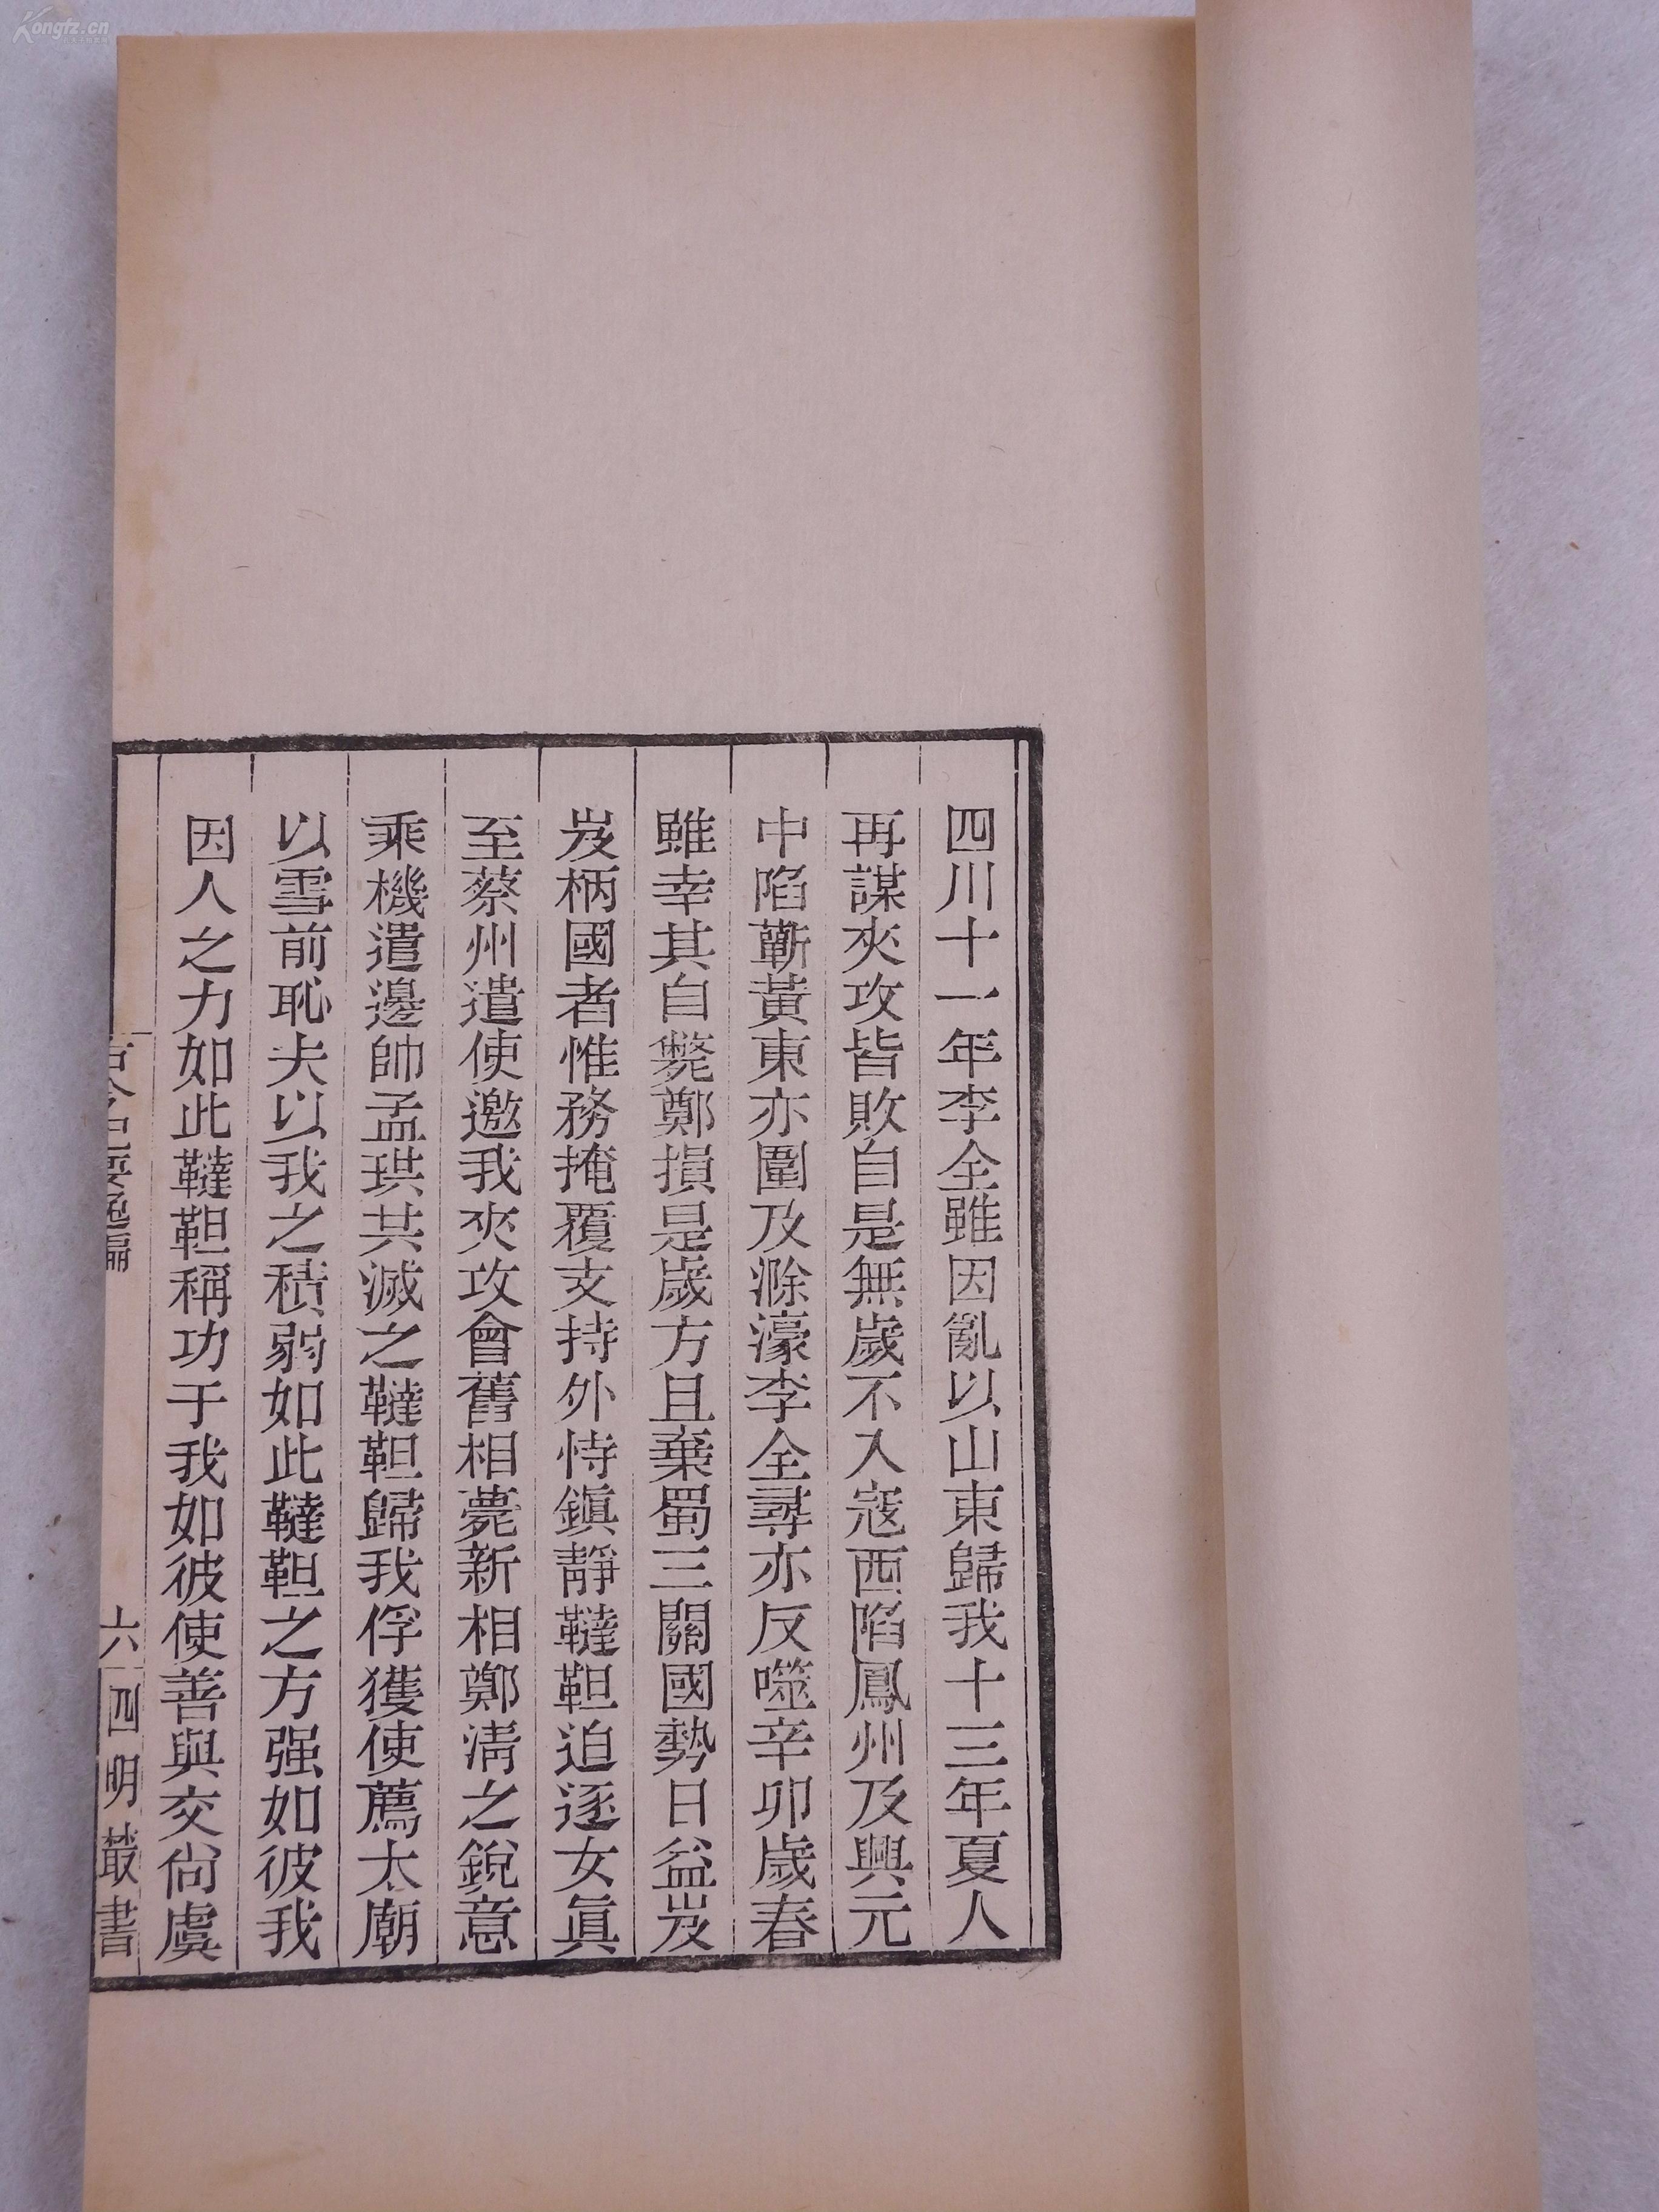 四川十一年李全雖因亂以山東歸我十三年夏人
再謀夾攻皆敗自是無歲不入寇西陷鳳州及興元
中陷蘄黃東亦圍及滁濠李全尋亦反噬辛卯歲春
雖幸其自斃鄭損是歲方且棄蜀三關國勢日益岌
岌柄國者惟務掩覆支持外恃鎭靜韃靼迫逐女眞
至蔡州遣使邀我夾攻會舊相薨新相鄭淸之銳意
乘機遣邊帥孟珙共滅之韃靼歸我俘獲使薦太廟
以雪前恥夫以我之積弱如此韃靼之方强如彼我
因人之力如此韃靼稱功于我如彼使善與交尙虞
古今紀要逸編 六 四明叢書
Kongfz.cn